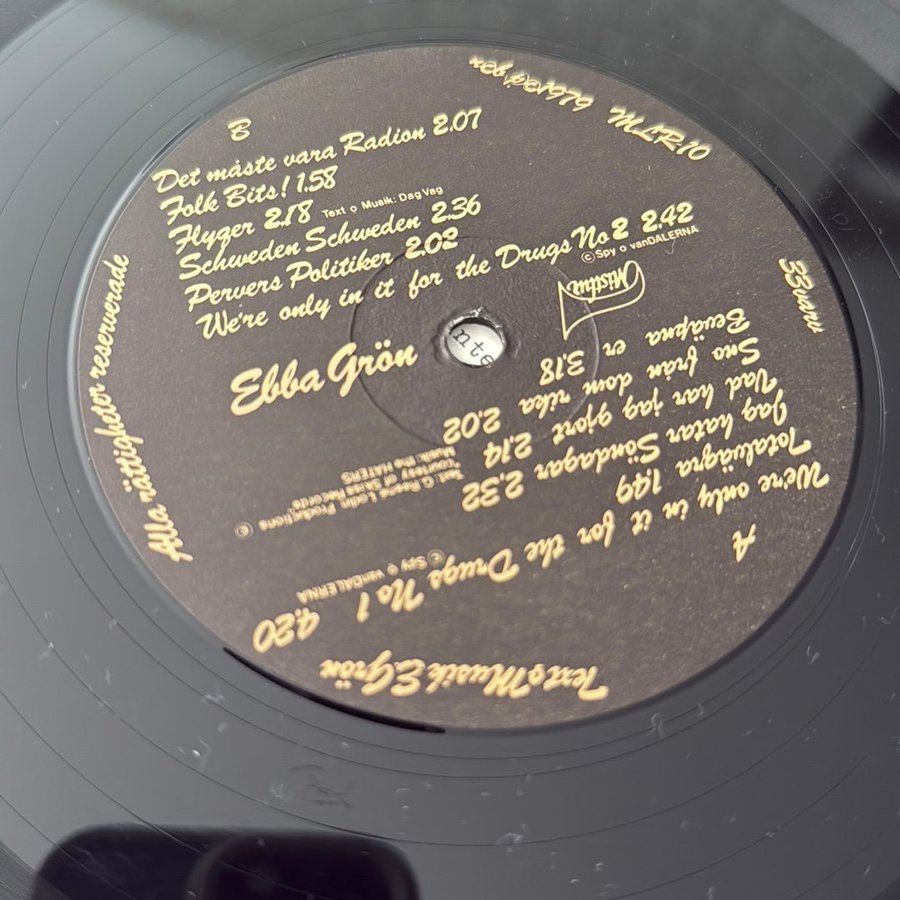 B
Det måste vara Radion 2.07
Folk Bits! 1.58
Flyger 2.18 Text o Musik: Dag Vag
Schweden Schweden 2.36
Pervers Politiker 2.02
We're only in it for the Drugs No 2 2.42
© Spy o vanDALERNA
Mistlur
Ebba Grön
MLR:10
33 varv
Alla rättigheter reserverade
Text o Musik E.Grön
A
We're only in it for the Drugs No 1 4.20
© Spy o vanDALERNA
Totalvägra 1.49
Jag hatar Söndagar 2.32
Productions ©
"courtesy of Records"
Musik: the HATERS
Vad har jag gjort 2.14
Sno från dom rika 2.02
Beväpna er 3.18